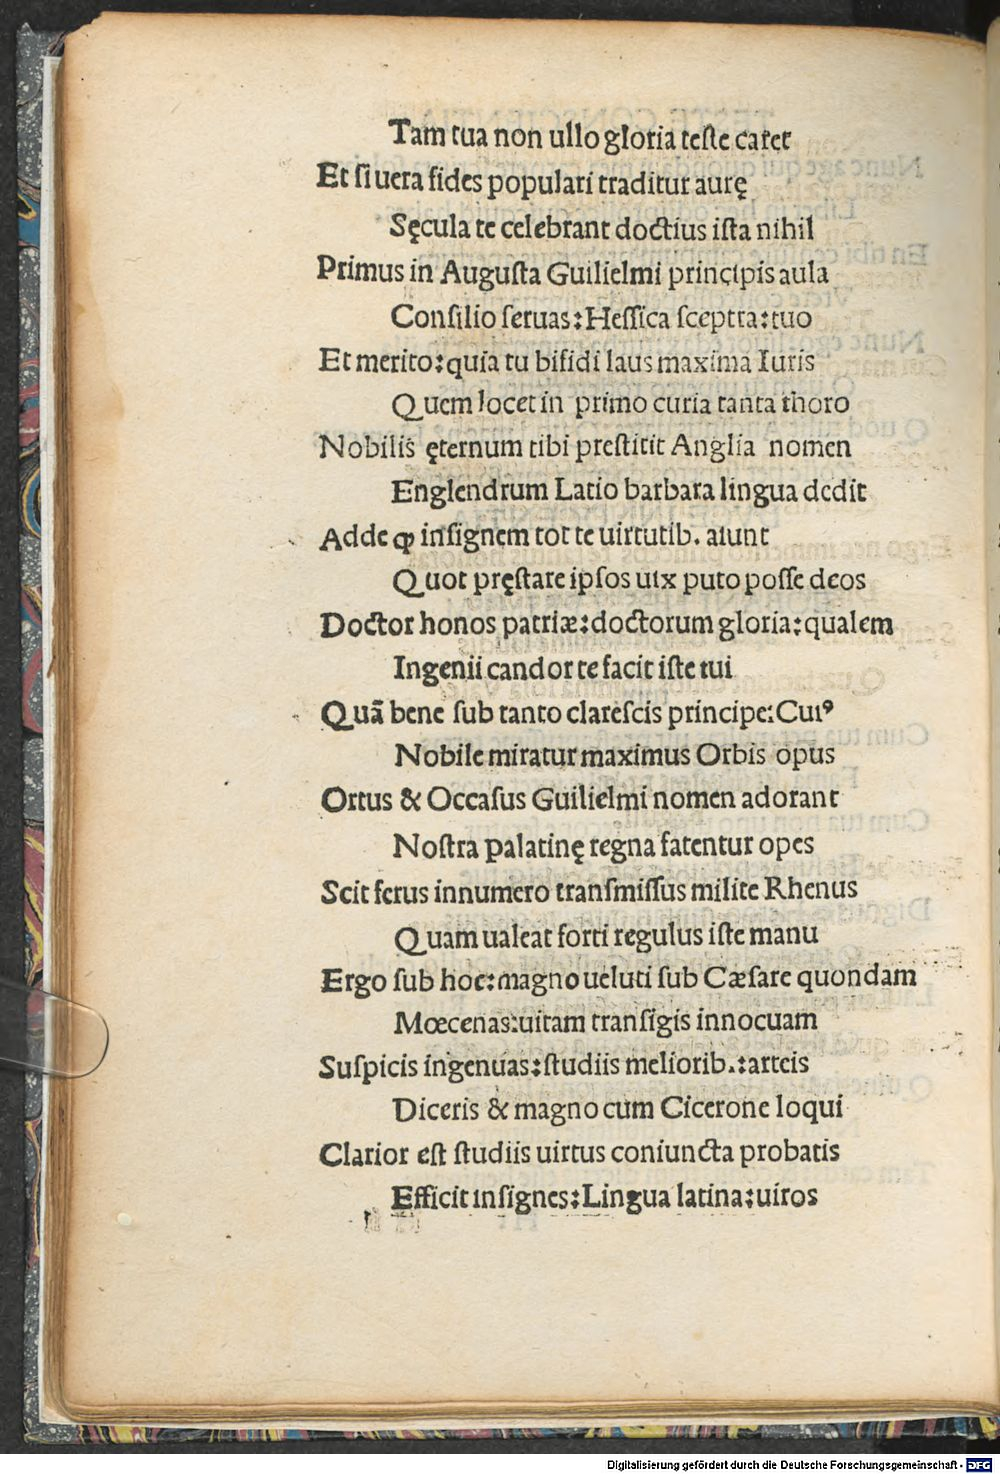 Tam tua non ullo gloria teste caret
Et si uera fides populari traditur aurę
Sęcula te celebrant doctius ista nihil
Primus in Augusta Guilielmi principis aula
Consilio seruas: Hessica sceptra: tuo
Et merito: quia tu bifidi laus maxima Iuris
Quem locet in primo curia tanta thoro
Nobilis ęternum tibi prestitit Anglia nomen
Englendrum Latio barbara lingua dedit
Adde ꝙ insignem tot te uirtutib. aiunt
Quot pręstare ipsos uix puto posse deos
Doctor honos patriæ: doctorum gloria: qualem
Ingenii candor te facit iste tui
Quã bene sub tanto clarescis principe: Cuiꝰ
Nobile miratur maximus Orbis opus
Ortus & Occasus Guilielmi nomen adorant
Nostra palatinę regna fatentur opes
Scit ferus innumero transmissus milite Rhenus
Quam ualeat forti regulus iste manu
Ergo sub hoc: magno ueluti sub Cæsare quondam
Mœcenas: uitam transigis innocuam
Suspicis ingenuas: studiis meliorib.: arteis
Diceris & magno cum Cicerone loqui
Clarior est studiis uirtus coniuncta probatis
Efficit insignes: Lingua latina: uiros
Digitalisierung gefördert durch die Deutsche Forschungsgemeinschaft - DFG